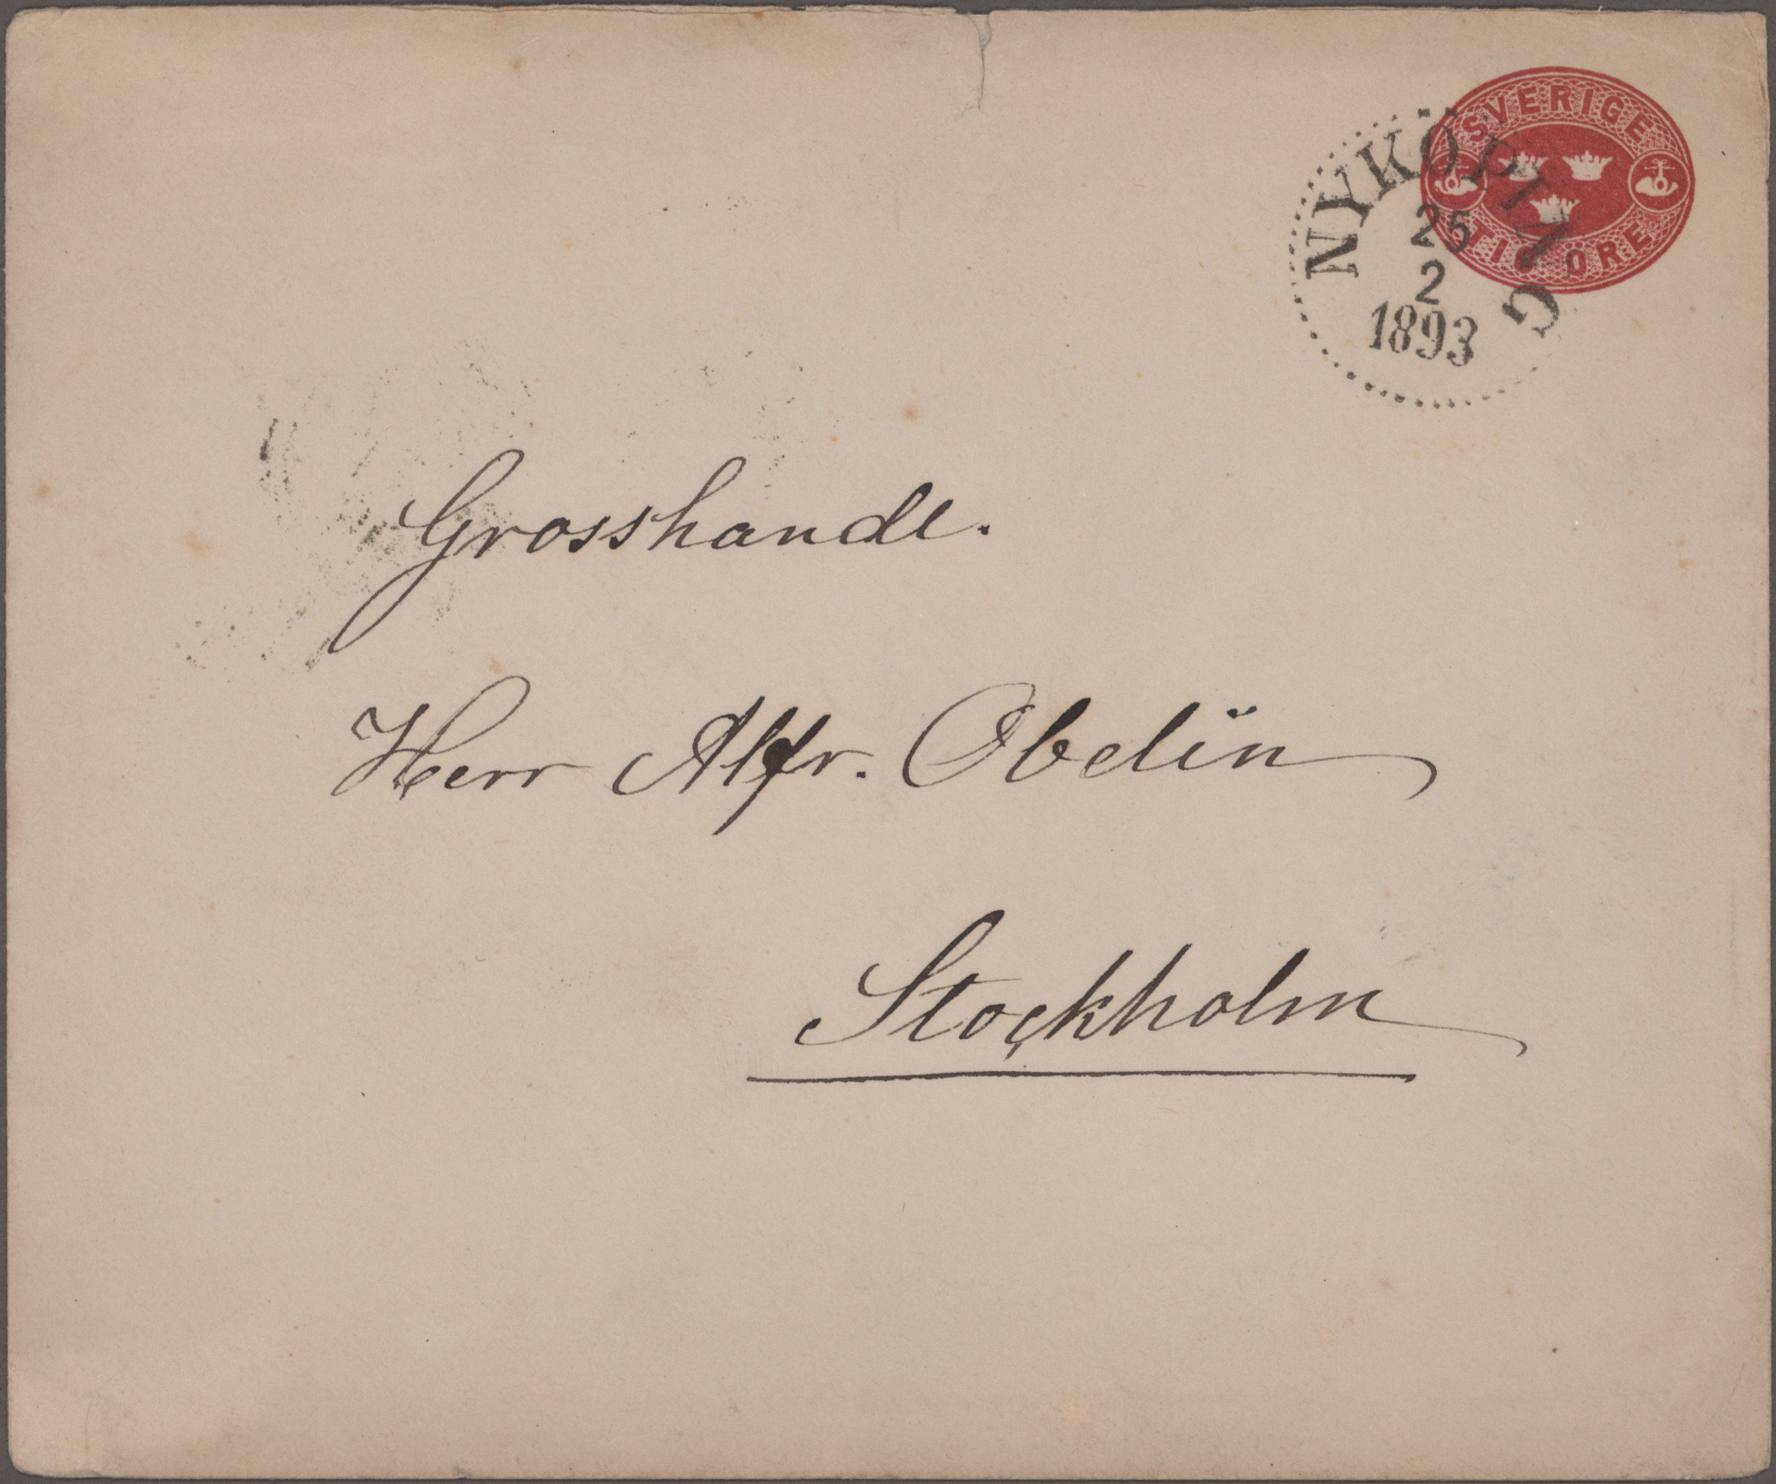 SVERIGE
TIO ÖRE
NYKÖPING
25
2
1893
Grosshandl.
Herr Alfr. Obelin
Stockholm